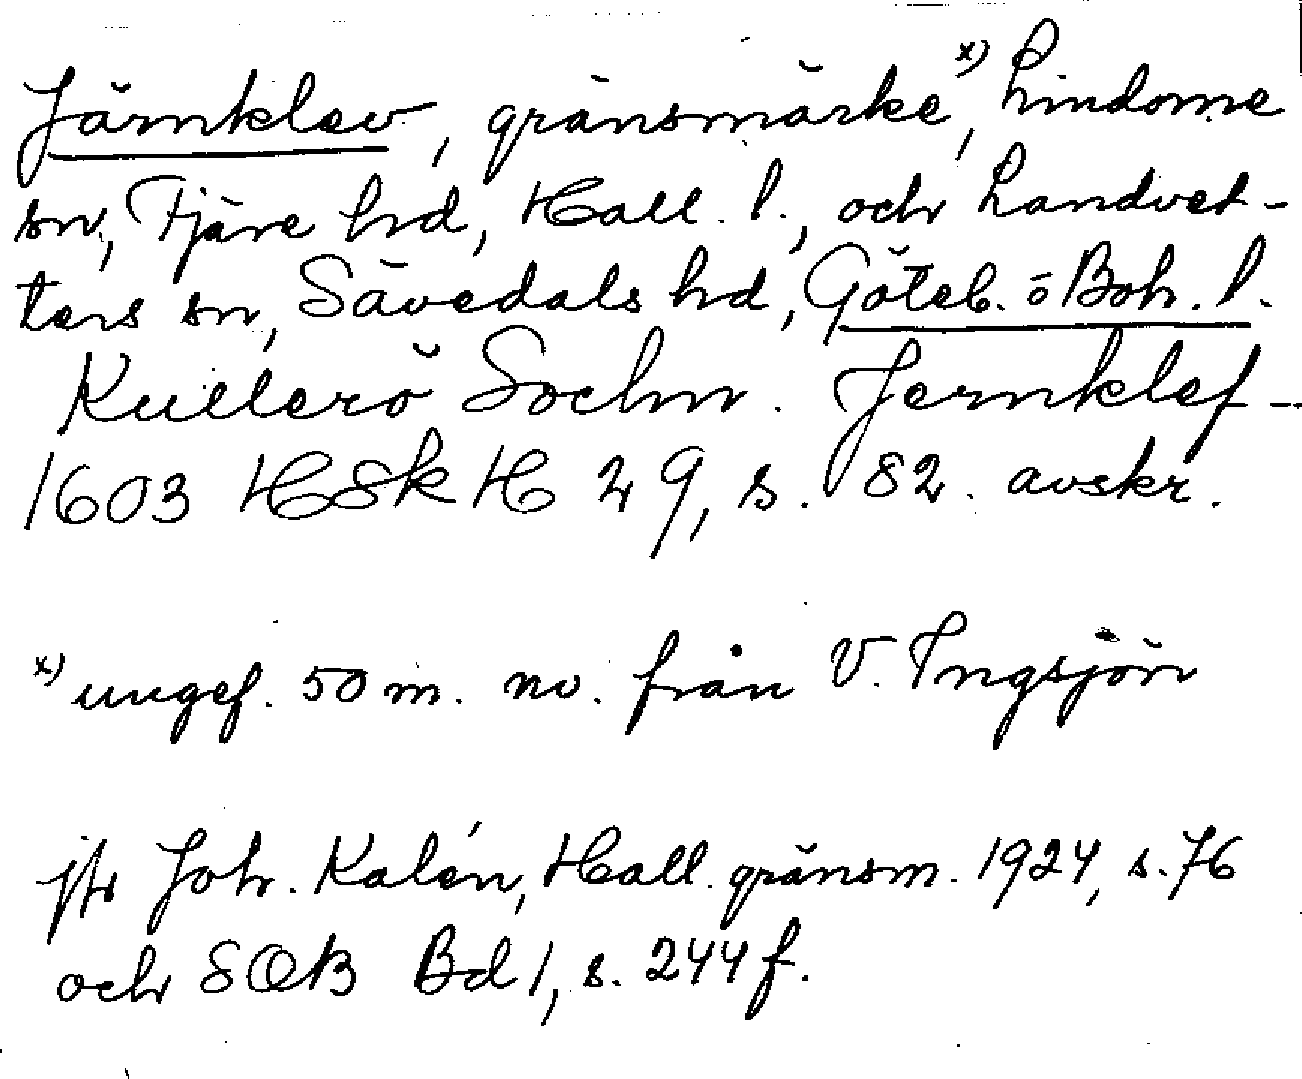 Järnklev, gränsmärke x), Lindome
sn, Fjäre hd, Hall. l., och Landvet-
ters sn, Sävedals hd, Göteb. o Boh. l.
Kullerö Sochn. Jernklef -
1603 HSkH 29, s. 82. avskr.
x) ungef. 50 m. nv. från V. Ingsjön
jfr Joh. Kalén, Hall. gränsm. 1924, s. 76
och SOB Bd 1, s. 244 f.